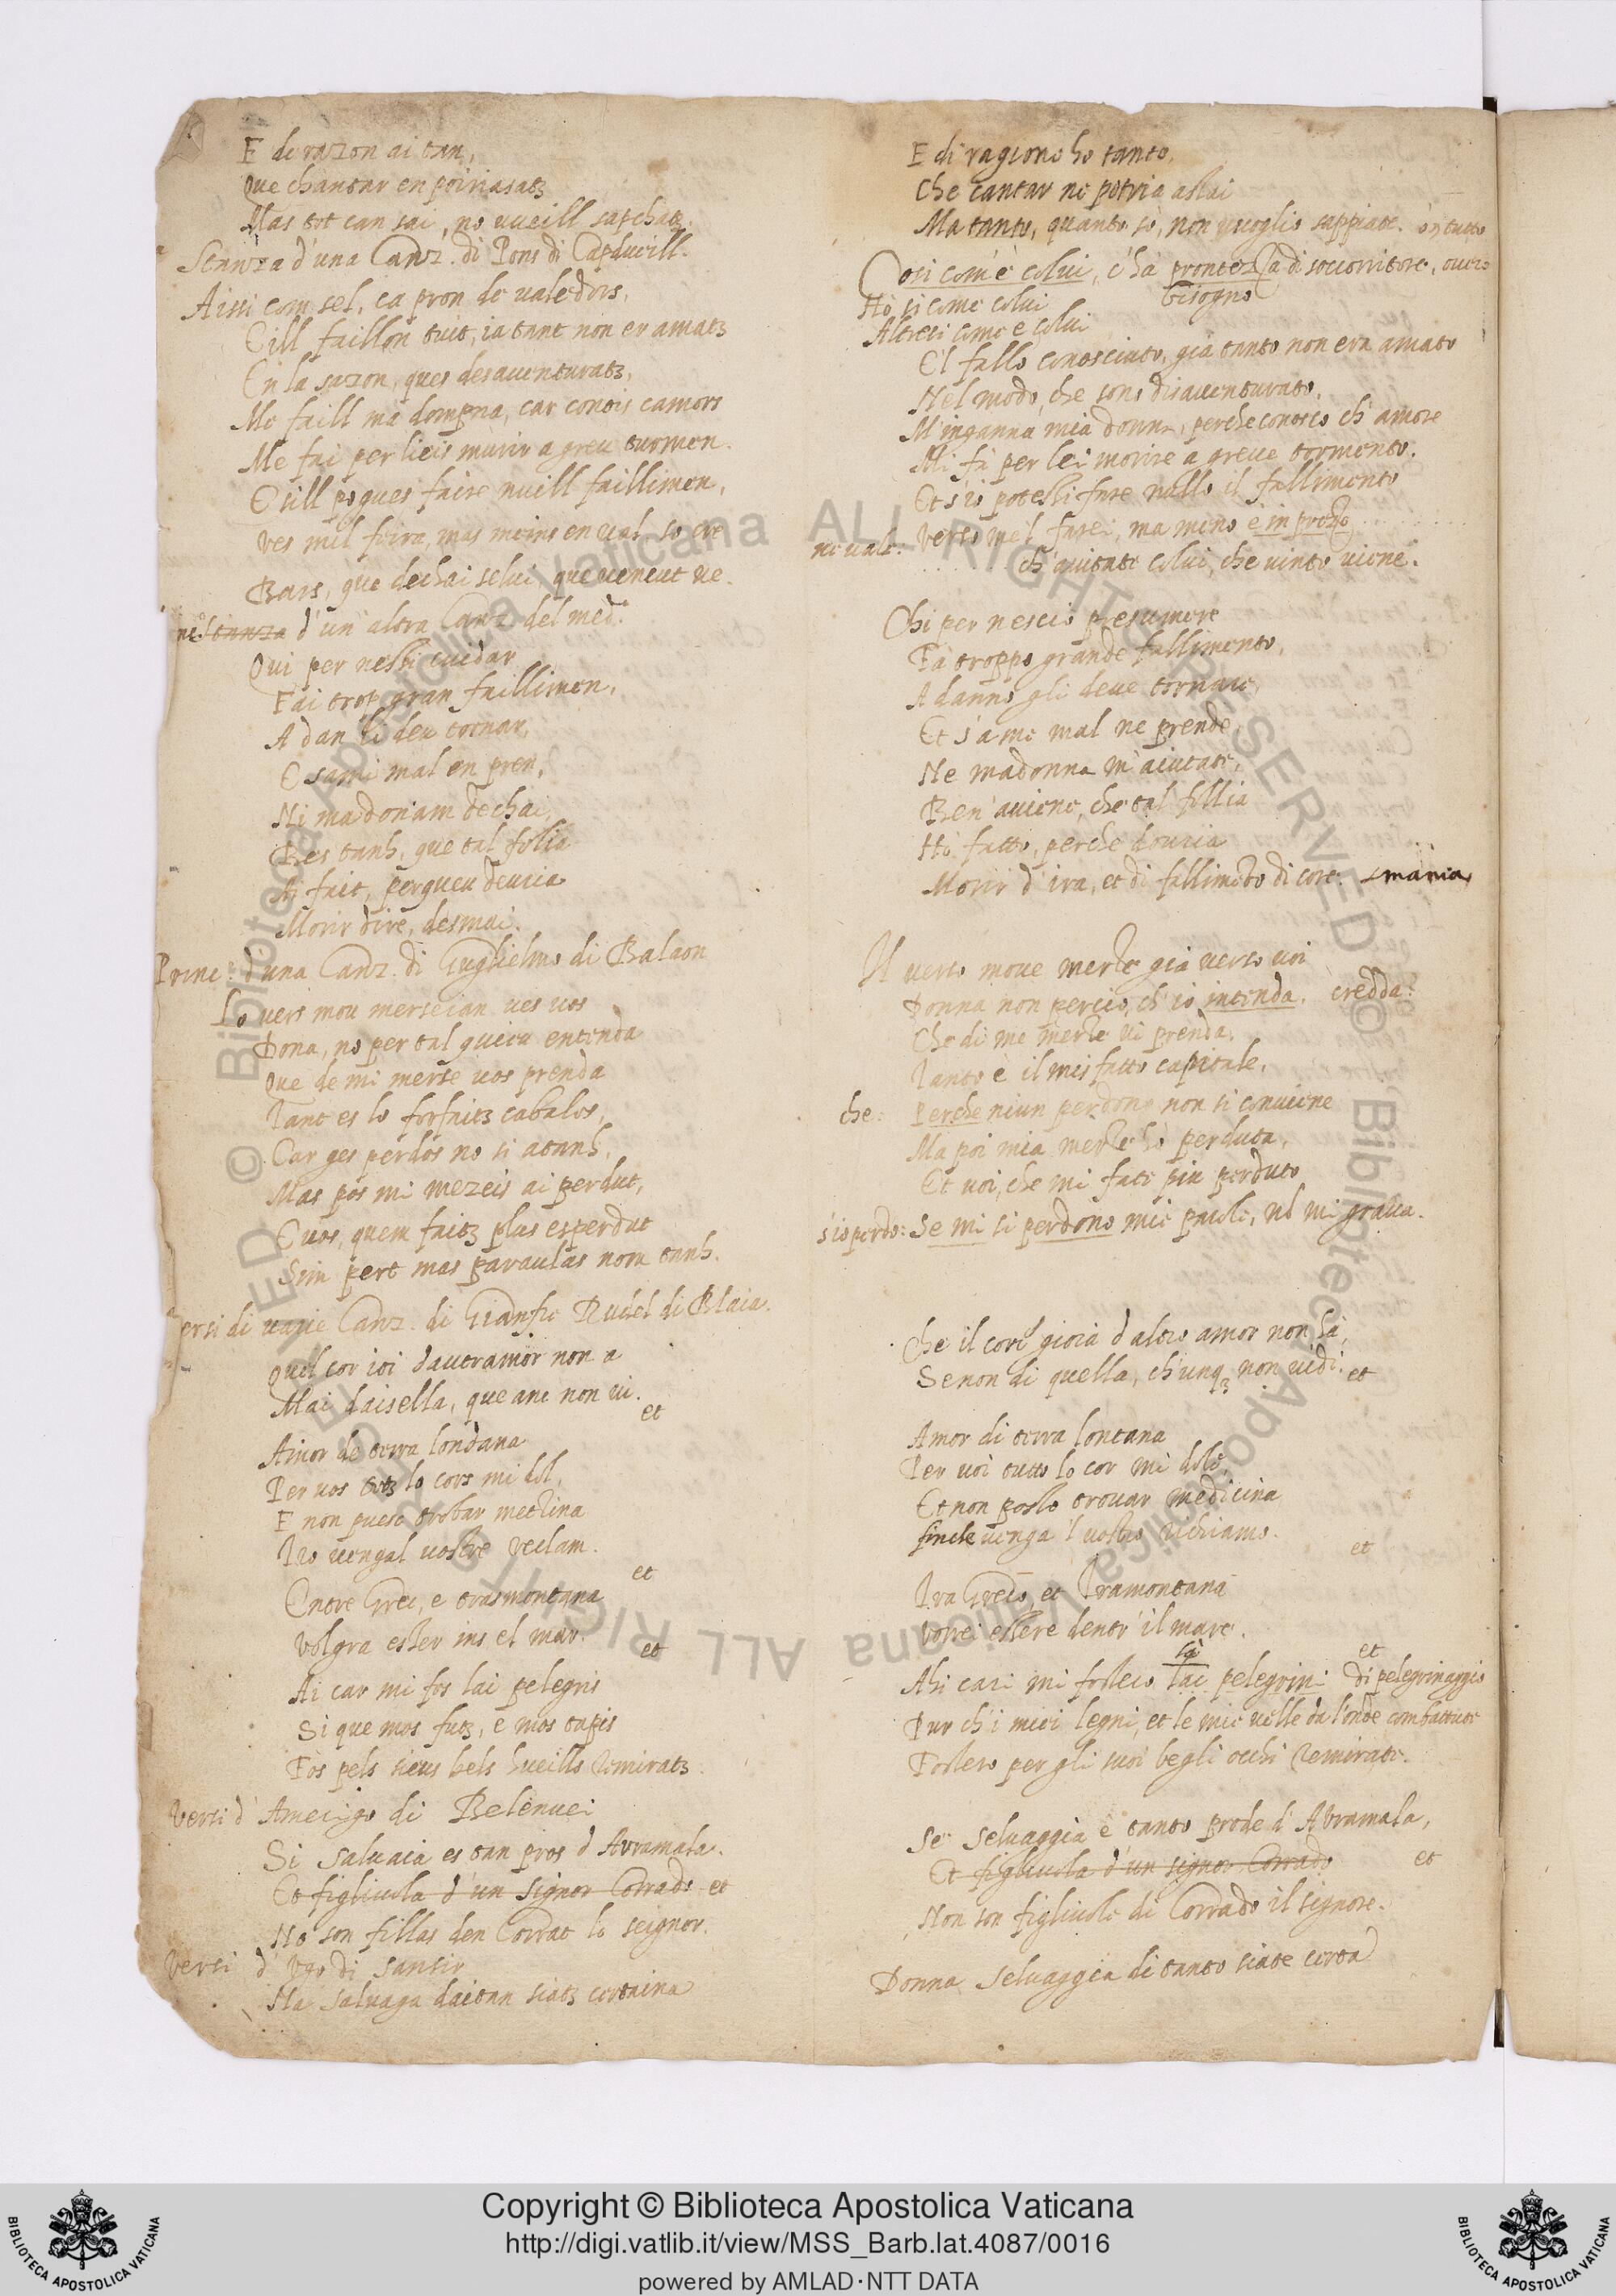 E de razon ai tan,
Que chantar en poiriasatz
Mas tot can sai, no vueill sapchatz.
Stanza d'una Canz. di Pons di Capdueill.
Aissi com sel, ca pron de ualedors,
E ill faillon tuit, ia tant non er amatz
En la sazon, ques desauenturatz,
Me faill ma dompna, car conois camors
Me fai per lieis murir a greu turmen.
E sill pogues faire nuill faillimen,
Ves mil feira, mas meins en val, so cre
Bars, que dechai selui que veneut ve.
ne. stanza d'un altra Canz. del med.º
Qui per nesci cuidar
Fai trop gran faillimen,
A dan li deu tornar,
E sami mal en pren,
Ni madonam dechai,
Bes tanh, que tal folia
Ai fait, perqueu deuria
Morir dire, desmai.
Princ. d'una Canz. di Guglielmo di Balaon
Lo vers mou merseian ves vos
Dona, no per tal quieu entenda
Que de mi merse vos prenda
Tant es lo forfaitz cabalos,
Car ges perdos no si atanh,
Mas pos mi mezeis ai perdut,
E vos, quem faitz plus esperdut
Sim pert mas paraulas nom tanh.
ersi di varie Canz. di Gianfre Rudel di Blaia.
Quel cor ioi dautramor non a
Mai daisella, que anc non vi.
et
Amor de terra londana
Per vos totz lo cors mi dol,
E non puesc trobar mezina
Tro vengal vostre reclam.
et
Entre Grec, e trasmontana
Volgra esser ins el mar.
et
Ai car mi fos lai pelegris
Si que mos futz, e mos tapis
Fos pels sieus bels hueills remiratz.
Versi d'Amerigo di Belenuei
Si saluaia es tan pros d'Auramala.
Et figliuola d'un signor Corrado et
No son fillas den Corrat lo seignor.
Versi d'Ugo di Sansir
Na saluaga daitan siatz certaina
E di ragione ho tanto,
Che cantar ne potria assai
Ma tanto, quanto sò, non uoglio sappiate. ón tutto
Cosi com'è colui, c'hà prontezza di soccorritore, ouero
bisogno
Hò sì come colui
Altresi come è colui
E'l fallo conosciuto, già tanto non era amato
Nel modo, che sono disauenturato.
M'inganna mia donna, perche conosco ch'amore
Mi fà per lei morire a greue tormento.
Et s'io potessi fare nullo il fallimento
ne vale: Verso me'l farei, ma meno è in prezo
ch'aiutate colui, che uinto uiene.
Chi per nescio presumere
Fà troppo grande fallimento,
A danno gli deue tornare,
Et s'à me mal ne prende,
Ne madonna m'aiutate,
Ben'auiene, che tal follia
Hò fatto, perche douria
Morir d'ira, et di fallimẽto di core. smania
Il verso moue merzè già verso uoi
Donna non perciò, ch'io intenda. credda:
Che di me merzè ui prenda,
Tanto è il misfatto capitale,
che: Perche niun perdono non si conuiene
Ma poi mia merzè hò perduta,
Et uoi, che mi fate più perduto
s'io perdo: Se mi si perdono mie parole, nõ mi graua.
Che il core gioia d'altro amor non hà,
Se non di quella, ch'unq3 non uidi. et
Amor di terra lontana
Per uoi tutto lo cor mi dole
Et non posso trouar medicina
finche uenga 'l uostro richiamo.
et
Tra Greco, et Tramontana
Vorrei essere dentr'il mare.
et
là
Ahi cari mi fossero lai pelegrini di pelegrinaggio
Pur ch'i miei legni, et le mie uelle da l'onde combattute
Fossero per gli suoi begli occhi remirate.
Se seluaggia è tanto prode d'Auramala,
Et figliuola d'un signor Corrado et
Non son figliuole di Corrado il signore.
Donna seluaggia di tanto siate certa
© Biblioteca Apostolica Vaticana ALL RIGHTS RESERVED © Biblioteca Apostolica Vaticana ALL RIGHTS RESERVED
Copyright © Biblioteca Apostolica Vaticana
http://digi.vatlib.it/view/MSS_Barb.lat.4087/0016
powered by AMLAD·NTT DATA
BIBLIOTECA APOSTOLICA VATICANA
BIBLIOTECA APOSTOLICA VATICANA